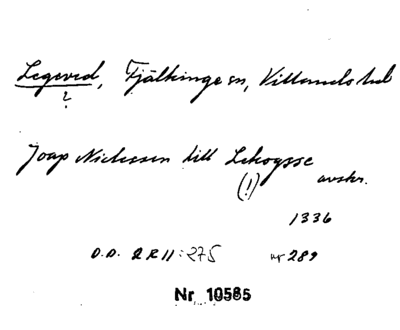 Legeved, Fjälkinge sn, Villands hd
?
Joap Niclessen till Lekogsse
(!) avskr.
1336
O.D. 2 R II: 275 nr 289
Nr 10565